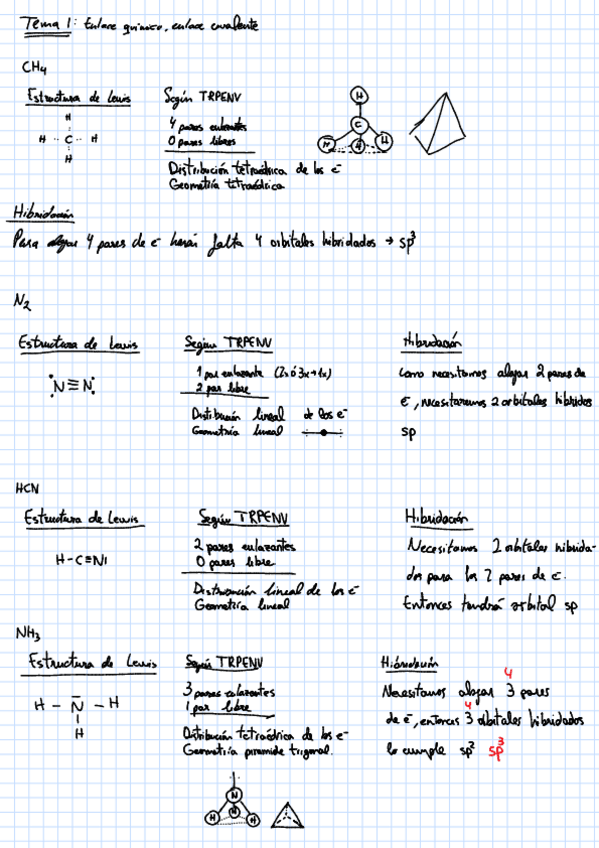 Tema 1: Enlace químico, enlace covalente
CH4
Estructura de Lewis
Según TRPENV
H
H ·· C ·· H
H
4 pares enlazantes
0 pares libres
Distribución tetraédrica de los e-
Geometría tetraédrica
H
C
H H H
Hibridación
Para alojar 4 pares de e- harán falta 4 orbitales hibridados → sp3
N2
Estructura de Lewis
Según TRPENV
Hibridación
:N≡N:
1 par enlazante (2x ó 3x→1x)
2 par libre
Distribución lineal de los e-
Geometría lineal
Como necesitamos alojar 2 pares de
e-, necesitaremos 2 orbitales híbridos
sp
HCN
Estructura de Lewis
Según TRPENV
Hibridación
H-C≡N|
2 pares enlazantes
0 pares libre
Distribución lineal de los e-
Geometría lineal
Necesitamos 2 orbitales hibrida-
dos para los 2 pares de e-.
Entonces tendrá orbital sp
NH3
Estructura de Lewis
Según TRPENV
Hibridación
H - N - H
H
3 pares enlazantes
1 par libre
Distribución tetraédrica de los e-
Geometría piramide trigonal.
4
Necesitamos alojar 3 pares
4
de e-, entonces 3 orbitales hibridados
lo cumple sp2 sp3
N
H H H